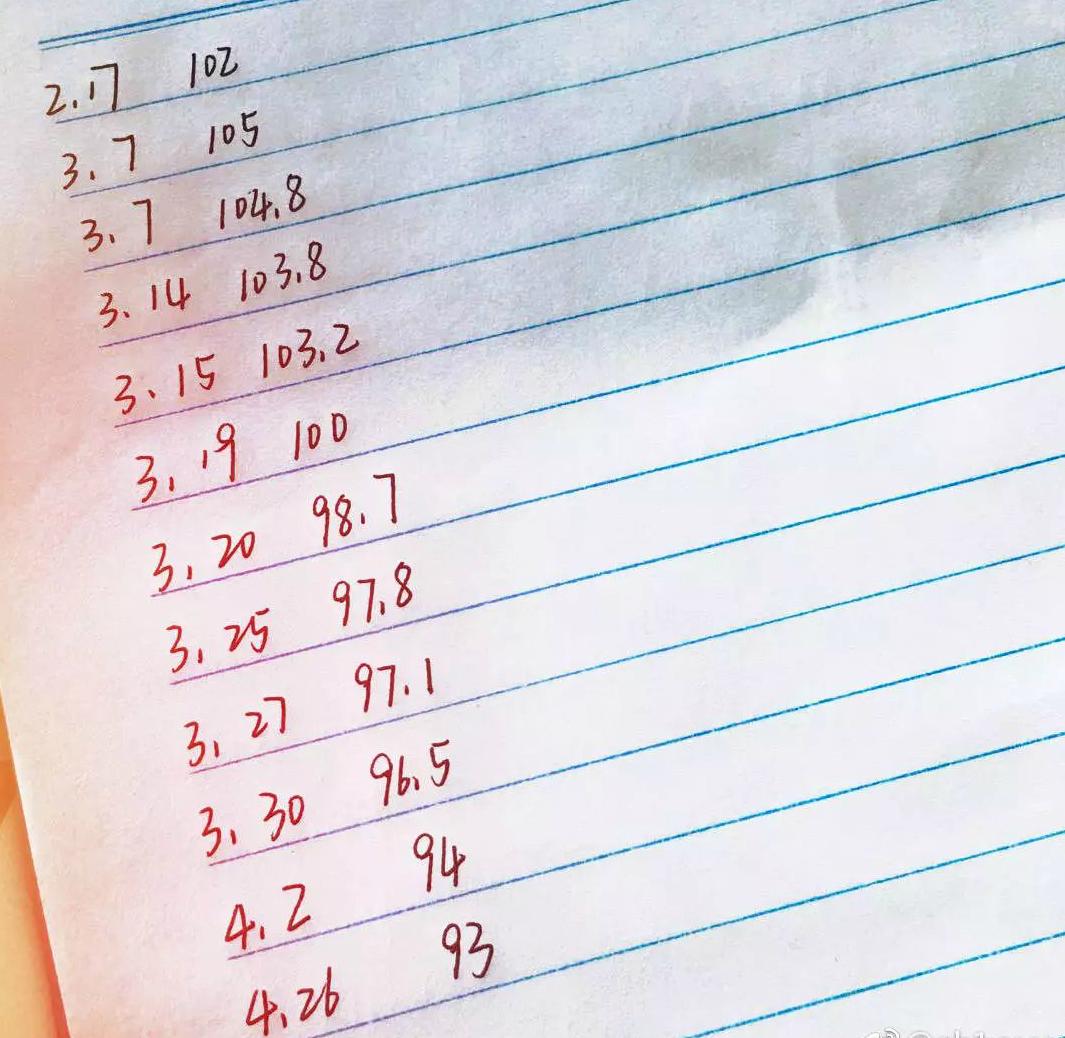 2.17 102
3.7 105
3.7 104.8
3.14 103.8
3、15 103.2
3.19 100
3.20 98.7
3.25 97.8
3.27 97.1
3.30 96.5
4.2 94
4.26 93